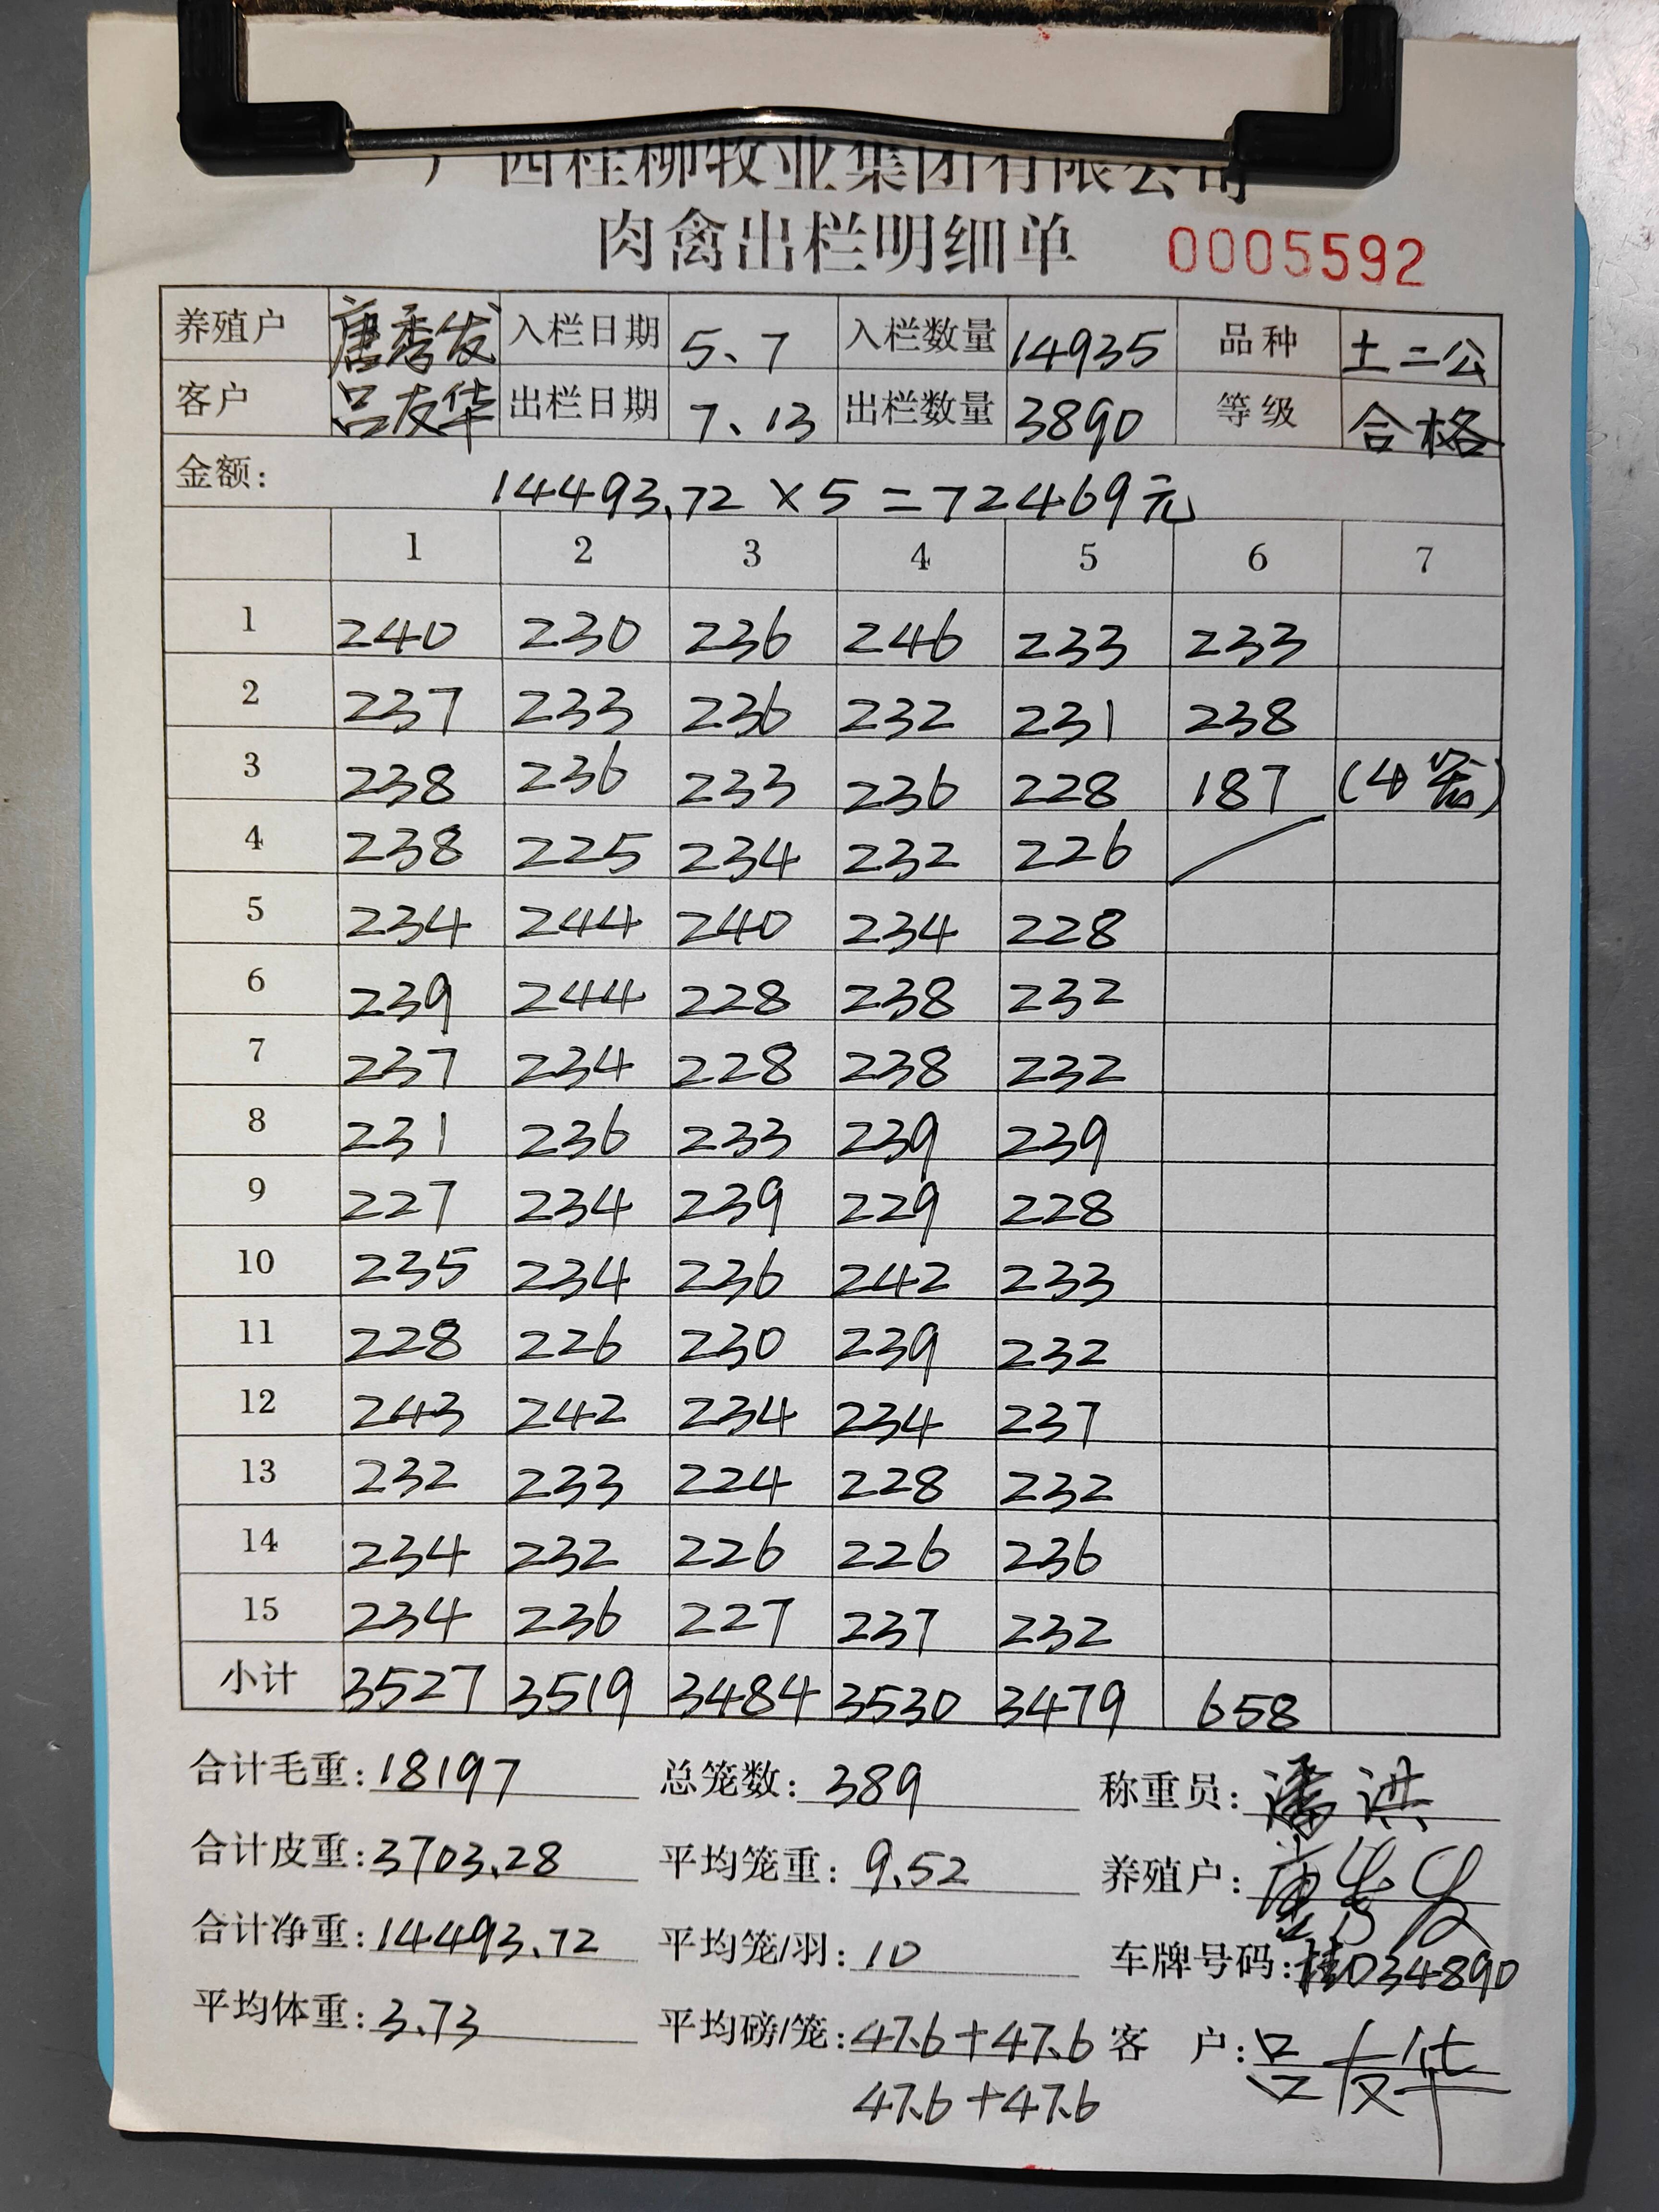 广西桂柳牧业集团有限公司
肉禽出栏明细单 0005592
养殖户 唐秀发 入栏日期 5、7 入栏数量 14935 品种 土二公
客户 吕友华 出栏日期 7、13 出栏数量 3890 等级 合格
金额: 14493.72×5=72469元
1 2 3 4 5 6 7
1 240 230 236 246 233 233
2 237 233 236 232 231 238
3 238 236 233 236 228 187 (4笼)
4 238 225 234 232 226
5 234 244 240 234 228
6 239 244 228 238 232
7 237 234 228 238 232
8 231 236 233 239 239
9 227 234 239 229 228
10 235 234 236 242 233
11 228 226 230 239 232
12 243 242 234 234 237
13 232 233 224 228 232
14 234 232 226 226 236
15 234 236 227 237 232
小计 3527 3519 3484 3530 3479 658
合计毛重: 18197 总笼数: 389 称重员: 潘洪
合计皮重: 3703.28 平均笼重: 9.52 养殖户: 唐秀发
合计净重: 14493.72 平均笼/羽: 10 车牌号码: 桂D34890
平均体重: 3.73 平均磅/笼: 47.6+47.6 客 户: 吕友华
47.6+47.6